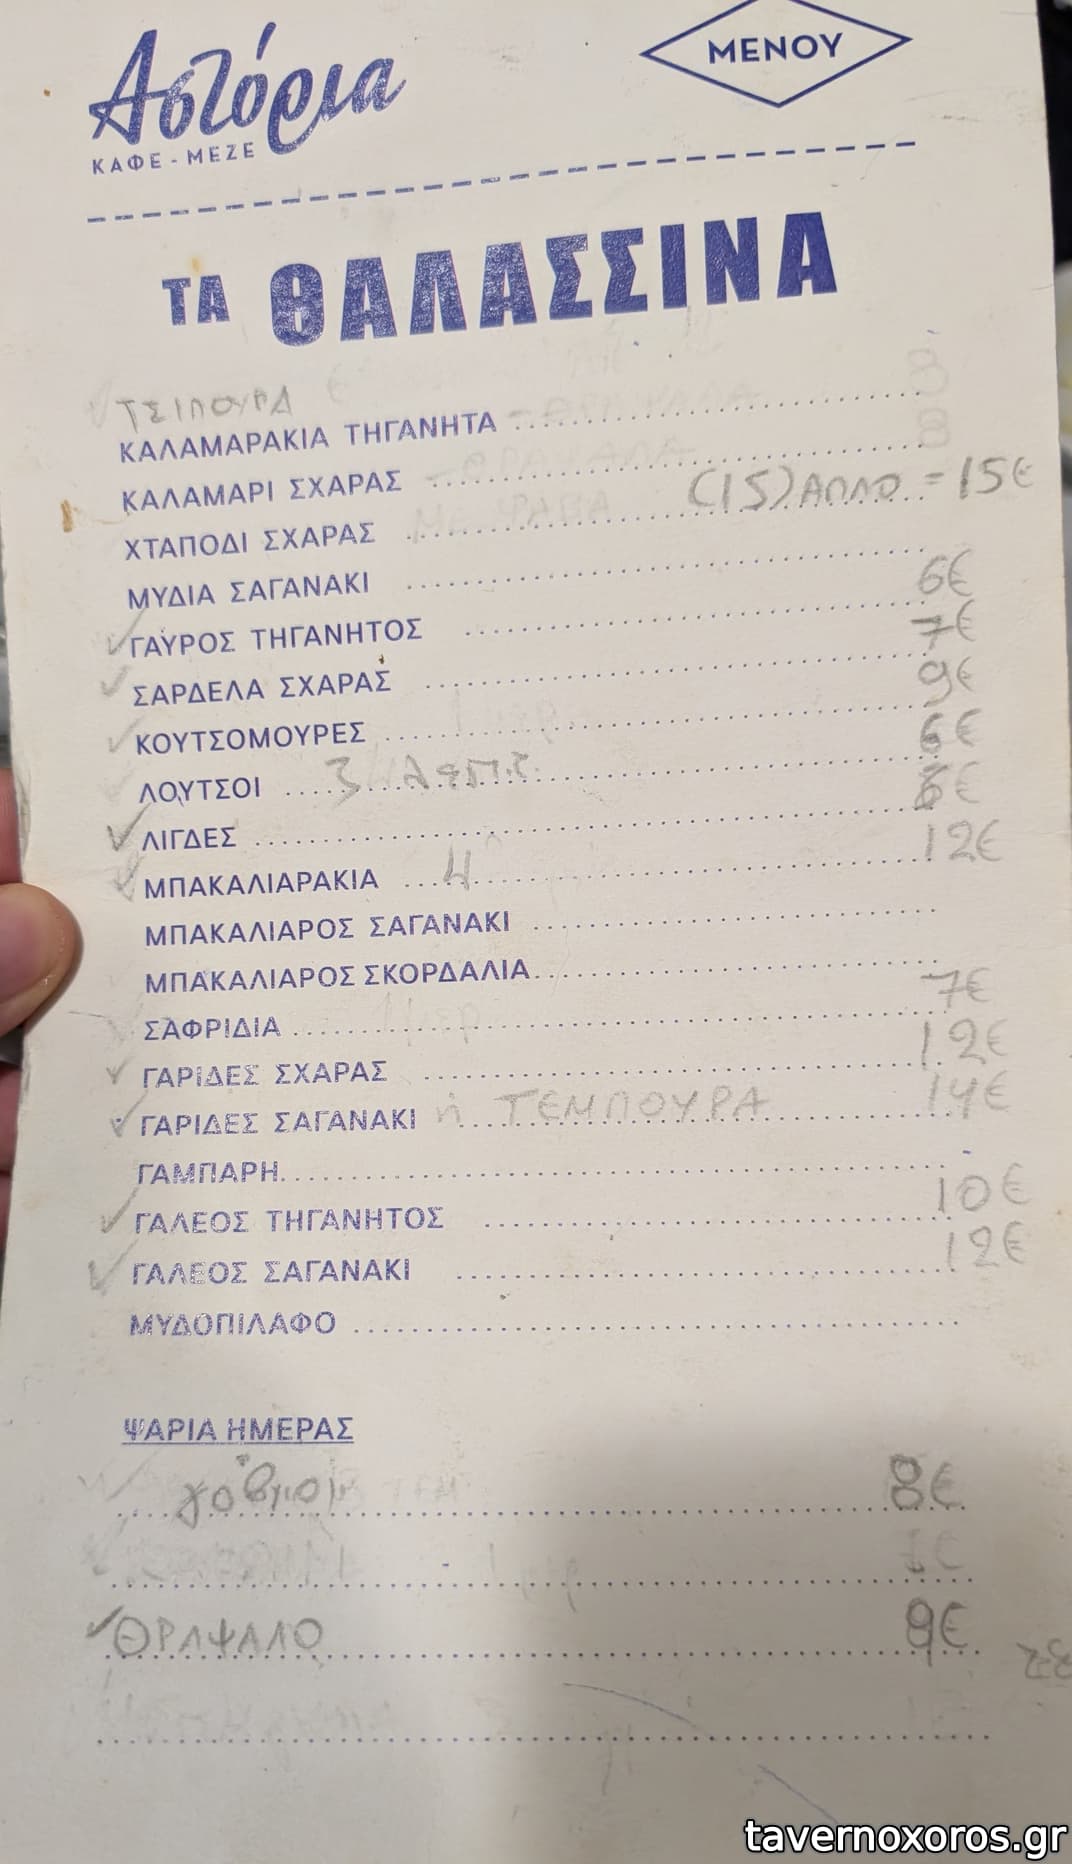 Αστόρια
ΚΑΦΕ - ΜΕΖΕ
ΜΕΝΟΥ
ΤΑ ΘΑΛΑΣΣΙΝΑ
ΤΣΙΠΟΥΡΑ
ΚΑΛΑΜΑΡΑΚΙΑ ΤΗΓΑΝΗΤΑ
ΚΑΛΑΜΑΡΙ ΣΧΑΡΑΣ
ΧΤΑΠΟΔΙ ΣΧΑΡΑΣ (15) = 15€
ΜΥΔΙΑ ΣΑΓΑΝΑΚΙ
ΓΑΥΡΟΣ ΤΗΓΑΝΗΤΟΣ 6€
ΣΑΡΔΕΛΑ ΣΧΑΡΑΣ 7€
ΚΟΥΤΣΟΜΟΥΡΕΣ 9€
ΛΟΥΤΣΟΙ 6€
ΛΙΓΔΕΣ €
ΜΠΑΚΑΛΙΑΡΑΚΙΑ 4 12€
ΜΠΑΚΑΛΙΑΡΟΣ ΣΑΓΑΝΑΚΙ
ΜΠΑΚΑΛΙΑΡΟΣ ΣΚΟΡΔΑΛΙΑ
ΣΑΦΡΙΔΙΑ 7€
ΓΑΡΙΔΕΣ ΣΧΑΡΑΣ 12€
ΓΑΡΙΔΕΣ ΣΑΓΑΝΑΚΙ ή ΤΕΜΠΟΥΡΑ 14€
ΓΑΜΠΑΡΗ
ΓΑΛΕΟΣ ΤΗΓΑΝΗΤΟΣ 10€
ΓΑΛΕΟΣ ΣΑΓΑΝΑΚΙ 12€
ΜΥΔΟΠΙΛΑΦΟ
ΨΑΡΙΑ ΗΜΕΡΑΣ
8€
ΘΡΑΨΑΛΟ 9€
tavernoxoros.gr